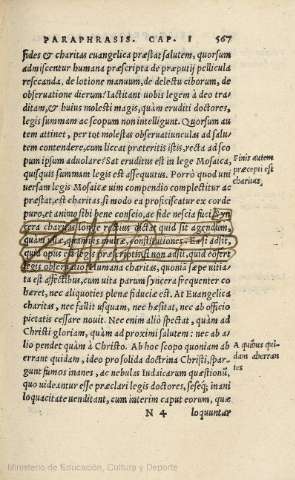 PARAPHRASIS. CAP. I 567
fides & charitas euangelica præstat salutem, quorsum
admiscentur humana præscripta de præputij pellicula
resecanda, de lotione manuum, de delectu ciborum, de
obseruatione dierum? Iactitant uobis legem à deo tra-
ditam, & huius molesti magis, quàm eruditi doctores,
legis summam ac scopum non intelligunt. Quorsum au
tem attinet, per tot molestas obseruatiunculas ad salu-
tem contendere, cum liceat præteritis istis, recta ad sco
pum ipsum aduolare? Sat eruditus est in lege Mosaica,
quisquis summam legis est assequutus. Porrò quod uni
uersam legis Mosaicæ uim compendio complectitur ac
præstat, est charitas, si modo ea proficiscatur ex corde
puro, et animo sibi bene conscio, ac fide nescia fuci. Syn
cera charitas longe rectius dictat quid sit agendum,
quàm quamuis multæ constitutiones. Ea si adsit,
quid opus est legis præscriptis? si non adsit, quid confert
legis obseruatio? Humana charitas, quoniã sæpe uitia
ta est affectibus, cum uita parum syncera frequenter co
hæret, nec aliquoties plena fiduciæ est. At Euangelica
charitas, nec fallit usquam, nec hæsitat, nec ab officio
pietatis cessare nouit. Nec enim aliò spectat, quàm ad
Christi gloriam, quàm ad proximi salutem: nec ab a-
lio pendet quàm à Christo. Ab hoc scopo quoniam ab
errant quidam, ideo pro solida doctrina Christi, spar-
gunt fumos inanes, ac nebulas Iudaicarum quæstionũ,
quo uideantur esse præclari legis doctores, seseq; inani
loquacitate uenditant, cum interim caput eorum, quæ
N 4 loquuntur
Finis autem
præcepti est
charitas.
A quibus qui-
dam aberran
tes
Ministerio de Educación, Cultura y Deporte